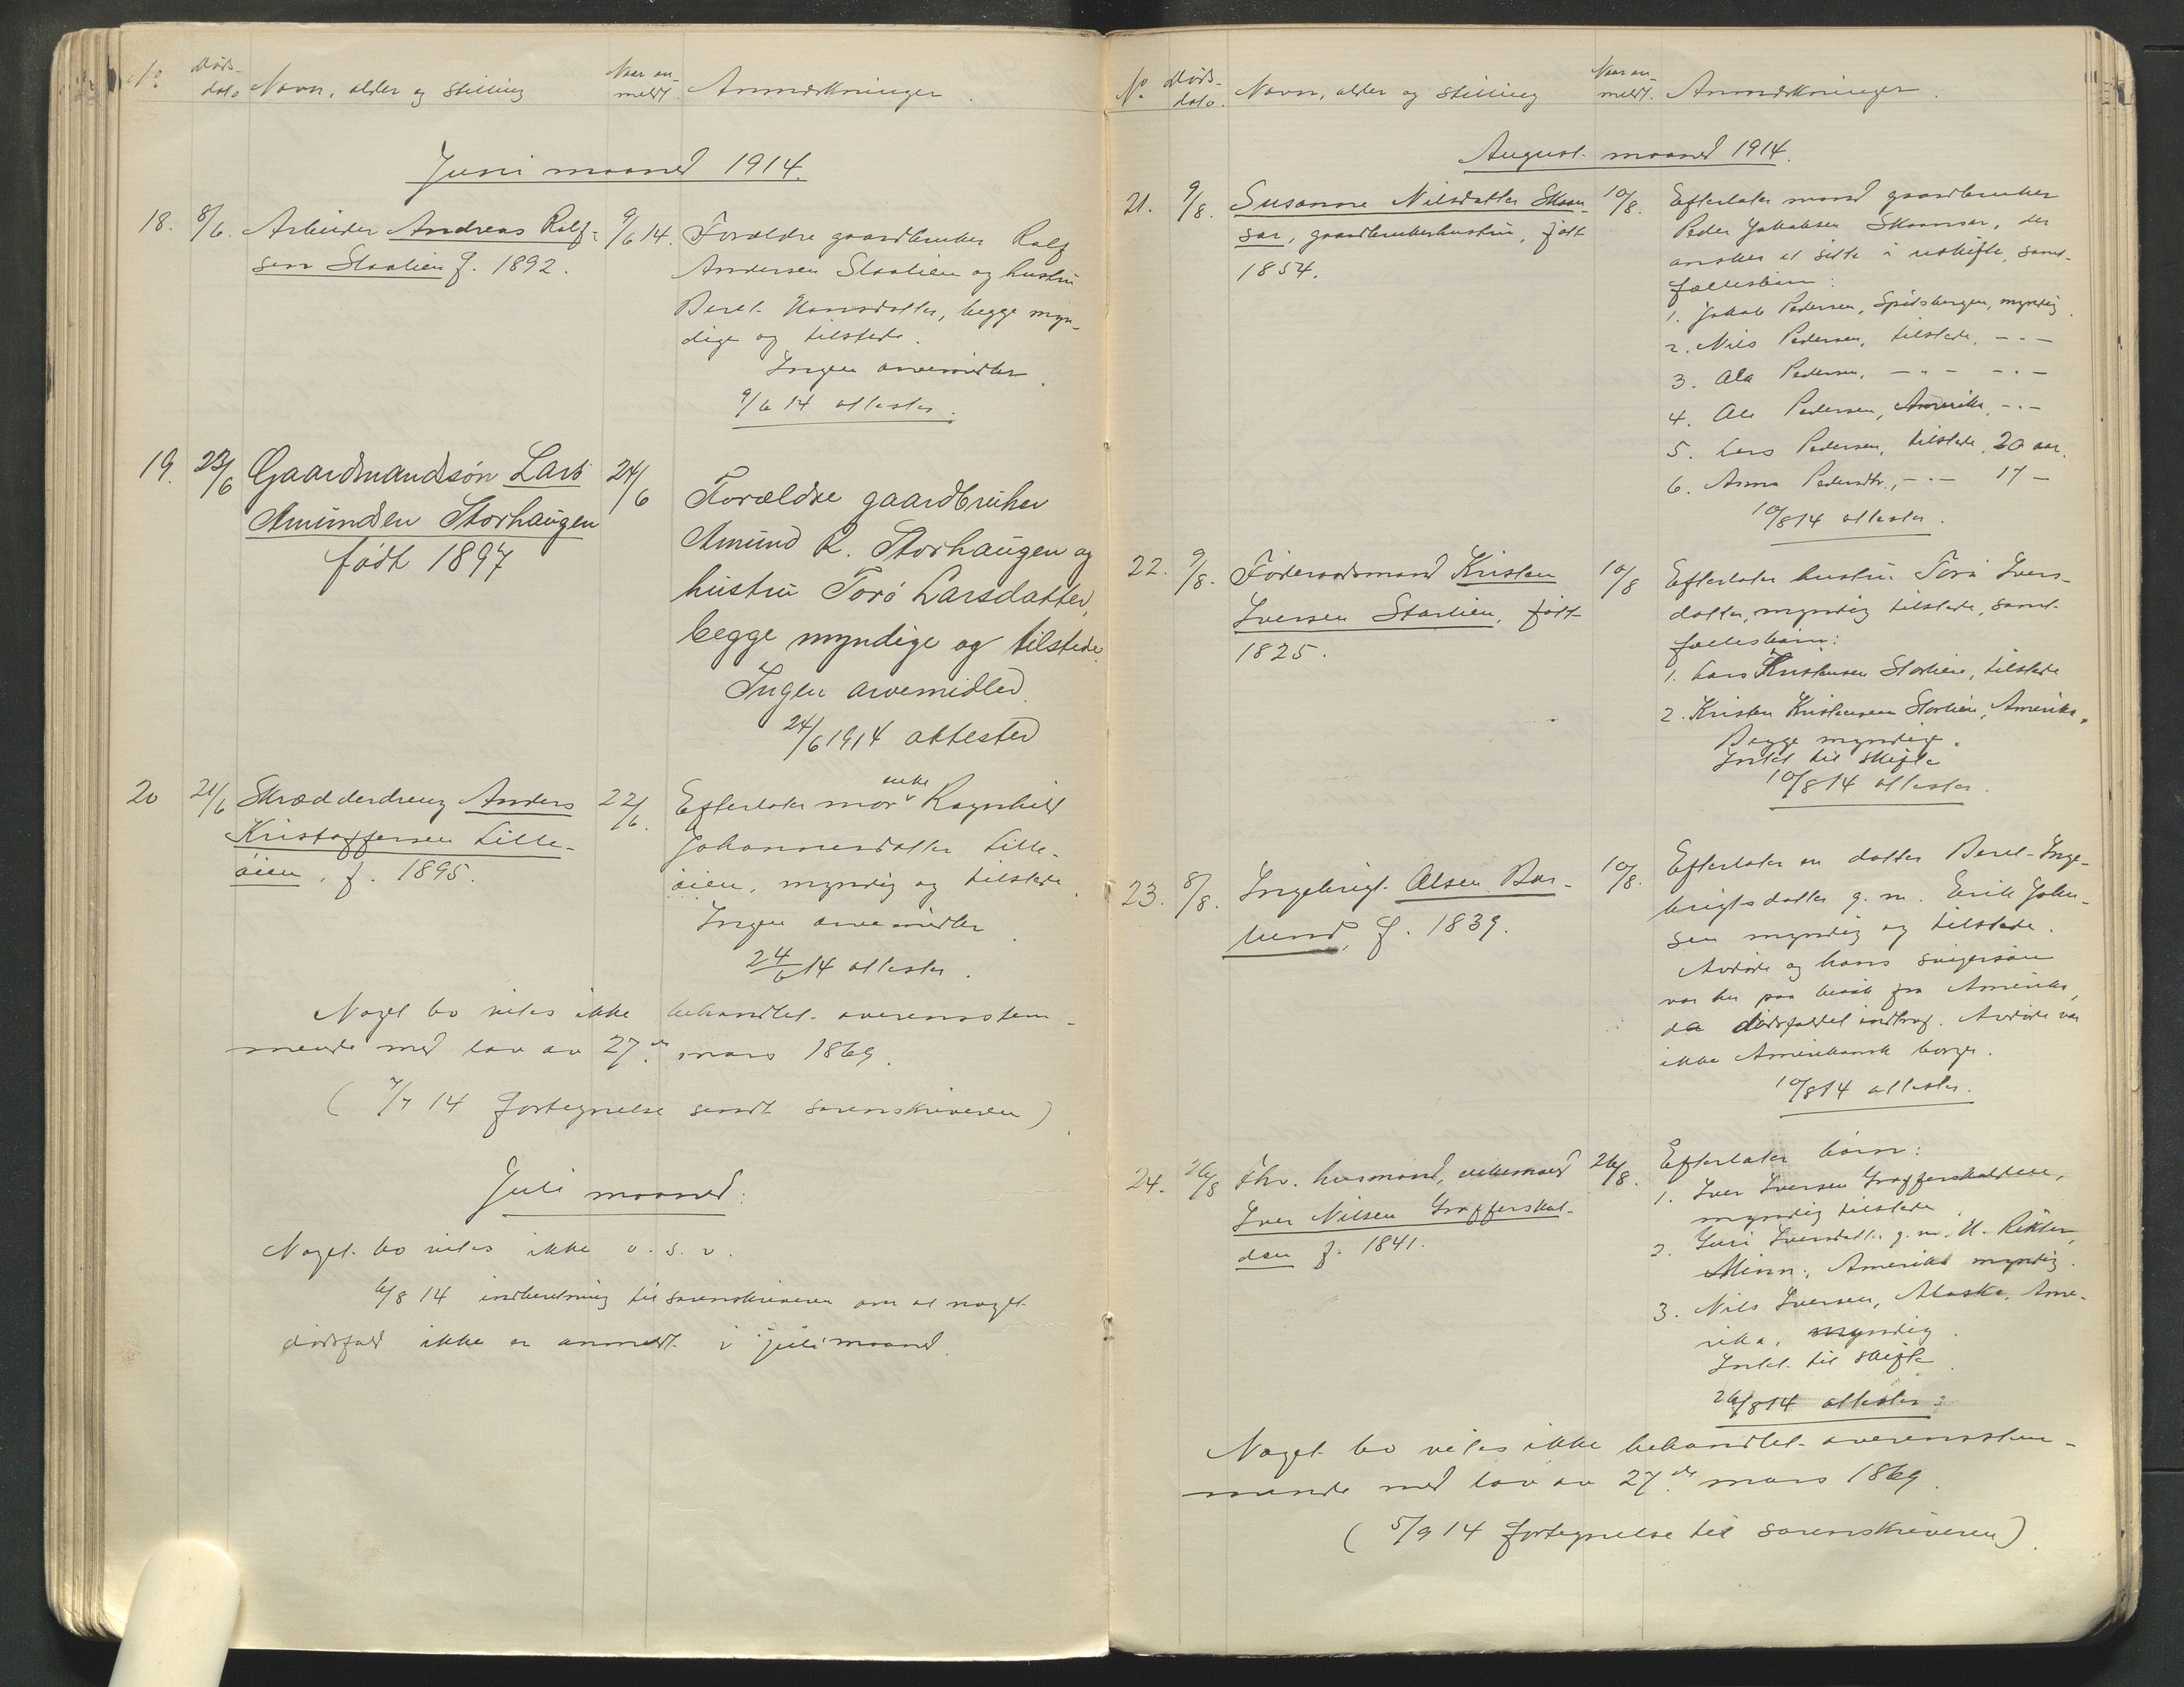 No. Døds-dato Navn, alder og stilling Naar an-meldt. Anmerkninger.
Juni maaned 1914.
18. 8/6. Arbeider Andreas Rolf-
sen Slaalien f. 1892.
9/6 14. Forældre gaardbruker Rolf
Andersen Slaalien og hustru
Beret Hansdatter, begge myn-
dige og tilstede.
Ingen arvemidler.
9/6 14 attester.
19. 23/6 Gaardmandsøn Lars
Amundsen Storhaugen
født 1897
24/6 Forældre gaardbruker
Amund R. Storhaugen og
hustru Torø Larsdatter,
begge myndige og tilstede.
Ingen arvemidler.
24/6 1914 attester
20 21/6 Skrædderdreng Anders
Kristoffersen Lille-
øien, f. 1895.
22/6. Efterlater mor enke Ragnhild
Johannesdatter Lille-
øien, myndig og tilstede.
Ingen arvemidler.
24/6 14 attester.
Noget bo vites ikke behandlet overensstem-
mende med lov av 27de mars 1869.
(7/7 14 fortegnelse sendt sorenskriveren).
Juli maaned.
Noget bo vites ikke o. s. v.
6/8 14 indberetning til sorenskriveren om at noget
dødsfald ikke er anmeldt i juli maaned.
No. Døds-dato. Navn, alder og stilling Naar an-meldt. Anmerkninger.
August maaned 1914.
21. 9/8. Susanne Nilsdatter Skaan-
sar, gaardbrukerhustru, født
1854.
10/8. Efterlater mand gaardbruker
Peder Jakobsen Skaansar, der
ønsker at sitte i uskifte, samt
fællesbørn:
1. Jakob Pedersen, Spidsbergen, myndig.
2. Nils Pedersen, tilstede, -"-
3. Ola Pedersen, -"- -"-
4. Ole Pedersen, Amerika, -"-
5. Lars Pedersen, tilstede, 20 aar.
6. Anna Pedersdtr., -"- 17 -
10/8 14 attester.
22. 9/8. Føderaadsmand Kristen
Iversen Starlien, født
1825.
10/8 Efterlater hustru Torø Ivers-
datter, myndig tilstede, samt
fællesbørn:
1. Lars Kristensen Storlien, tilstede
2. Kristen Kristensen Storlien, Amerika,
Begge myndige.
Intet til skifte
10/8 14 attester.
23. 8/8. Ingebrigt Olsen Bor-
lund, f. 1839.
10/8. Efterlater en datter Beret Inge-
brigtsdatter g. m. Erik John-
sen myndig og tilstede.
Avdøde og hans svigersøn
var her paa besøk fra Amerika,
da dødsfaldet indtraf. Avdøde var
ikke Amerikansk borger.
10/8 14 attester.
24. 26/8 Fhv. husmand, enkemand
Iver Nilsen Grafferskal-
den f. 1841.
26/8. Efterlater børn:
1. Iver Iversen Grafferskalden,
myndig tilstede
2. Guri Iversdatter g. m. H. Rikter,
Minn., Amerika myndig.
3. Nils Iversen, Alaska, Ame-
rika, myndig.
Intet til skifte.
26/8 14 attester.
Noget bo vites ikke behandlet overensstem-
mende med lov av 27de mars 1869.
(5/9 14 fortegnelse til sorenskriveren).